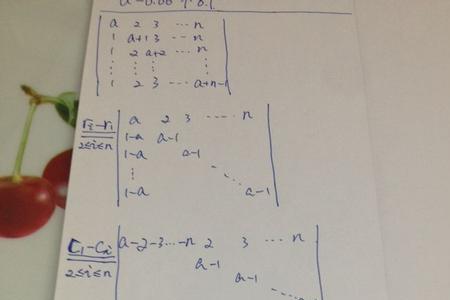 a 2 3 ... n
1 a+1 3 ... n
1 2 a+2 ... n
⋮ ⋮ ⋮ ⋮
1 2 3 ... a+n-1
ri-r1 a 2 3 ... n
2≤i≤n 1-a a-1
1-a a-1
⋮ ⋱
1-a a-1
C1-Ci a-2-3...-n 2 3 ... n
2≤i≤n a-1
a-1